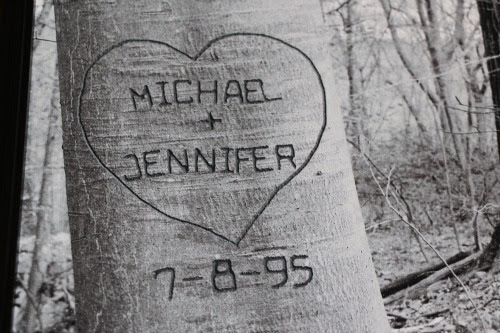 MICHAEL
+
JENNIFER
7-8-95